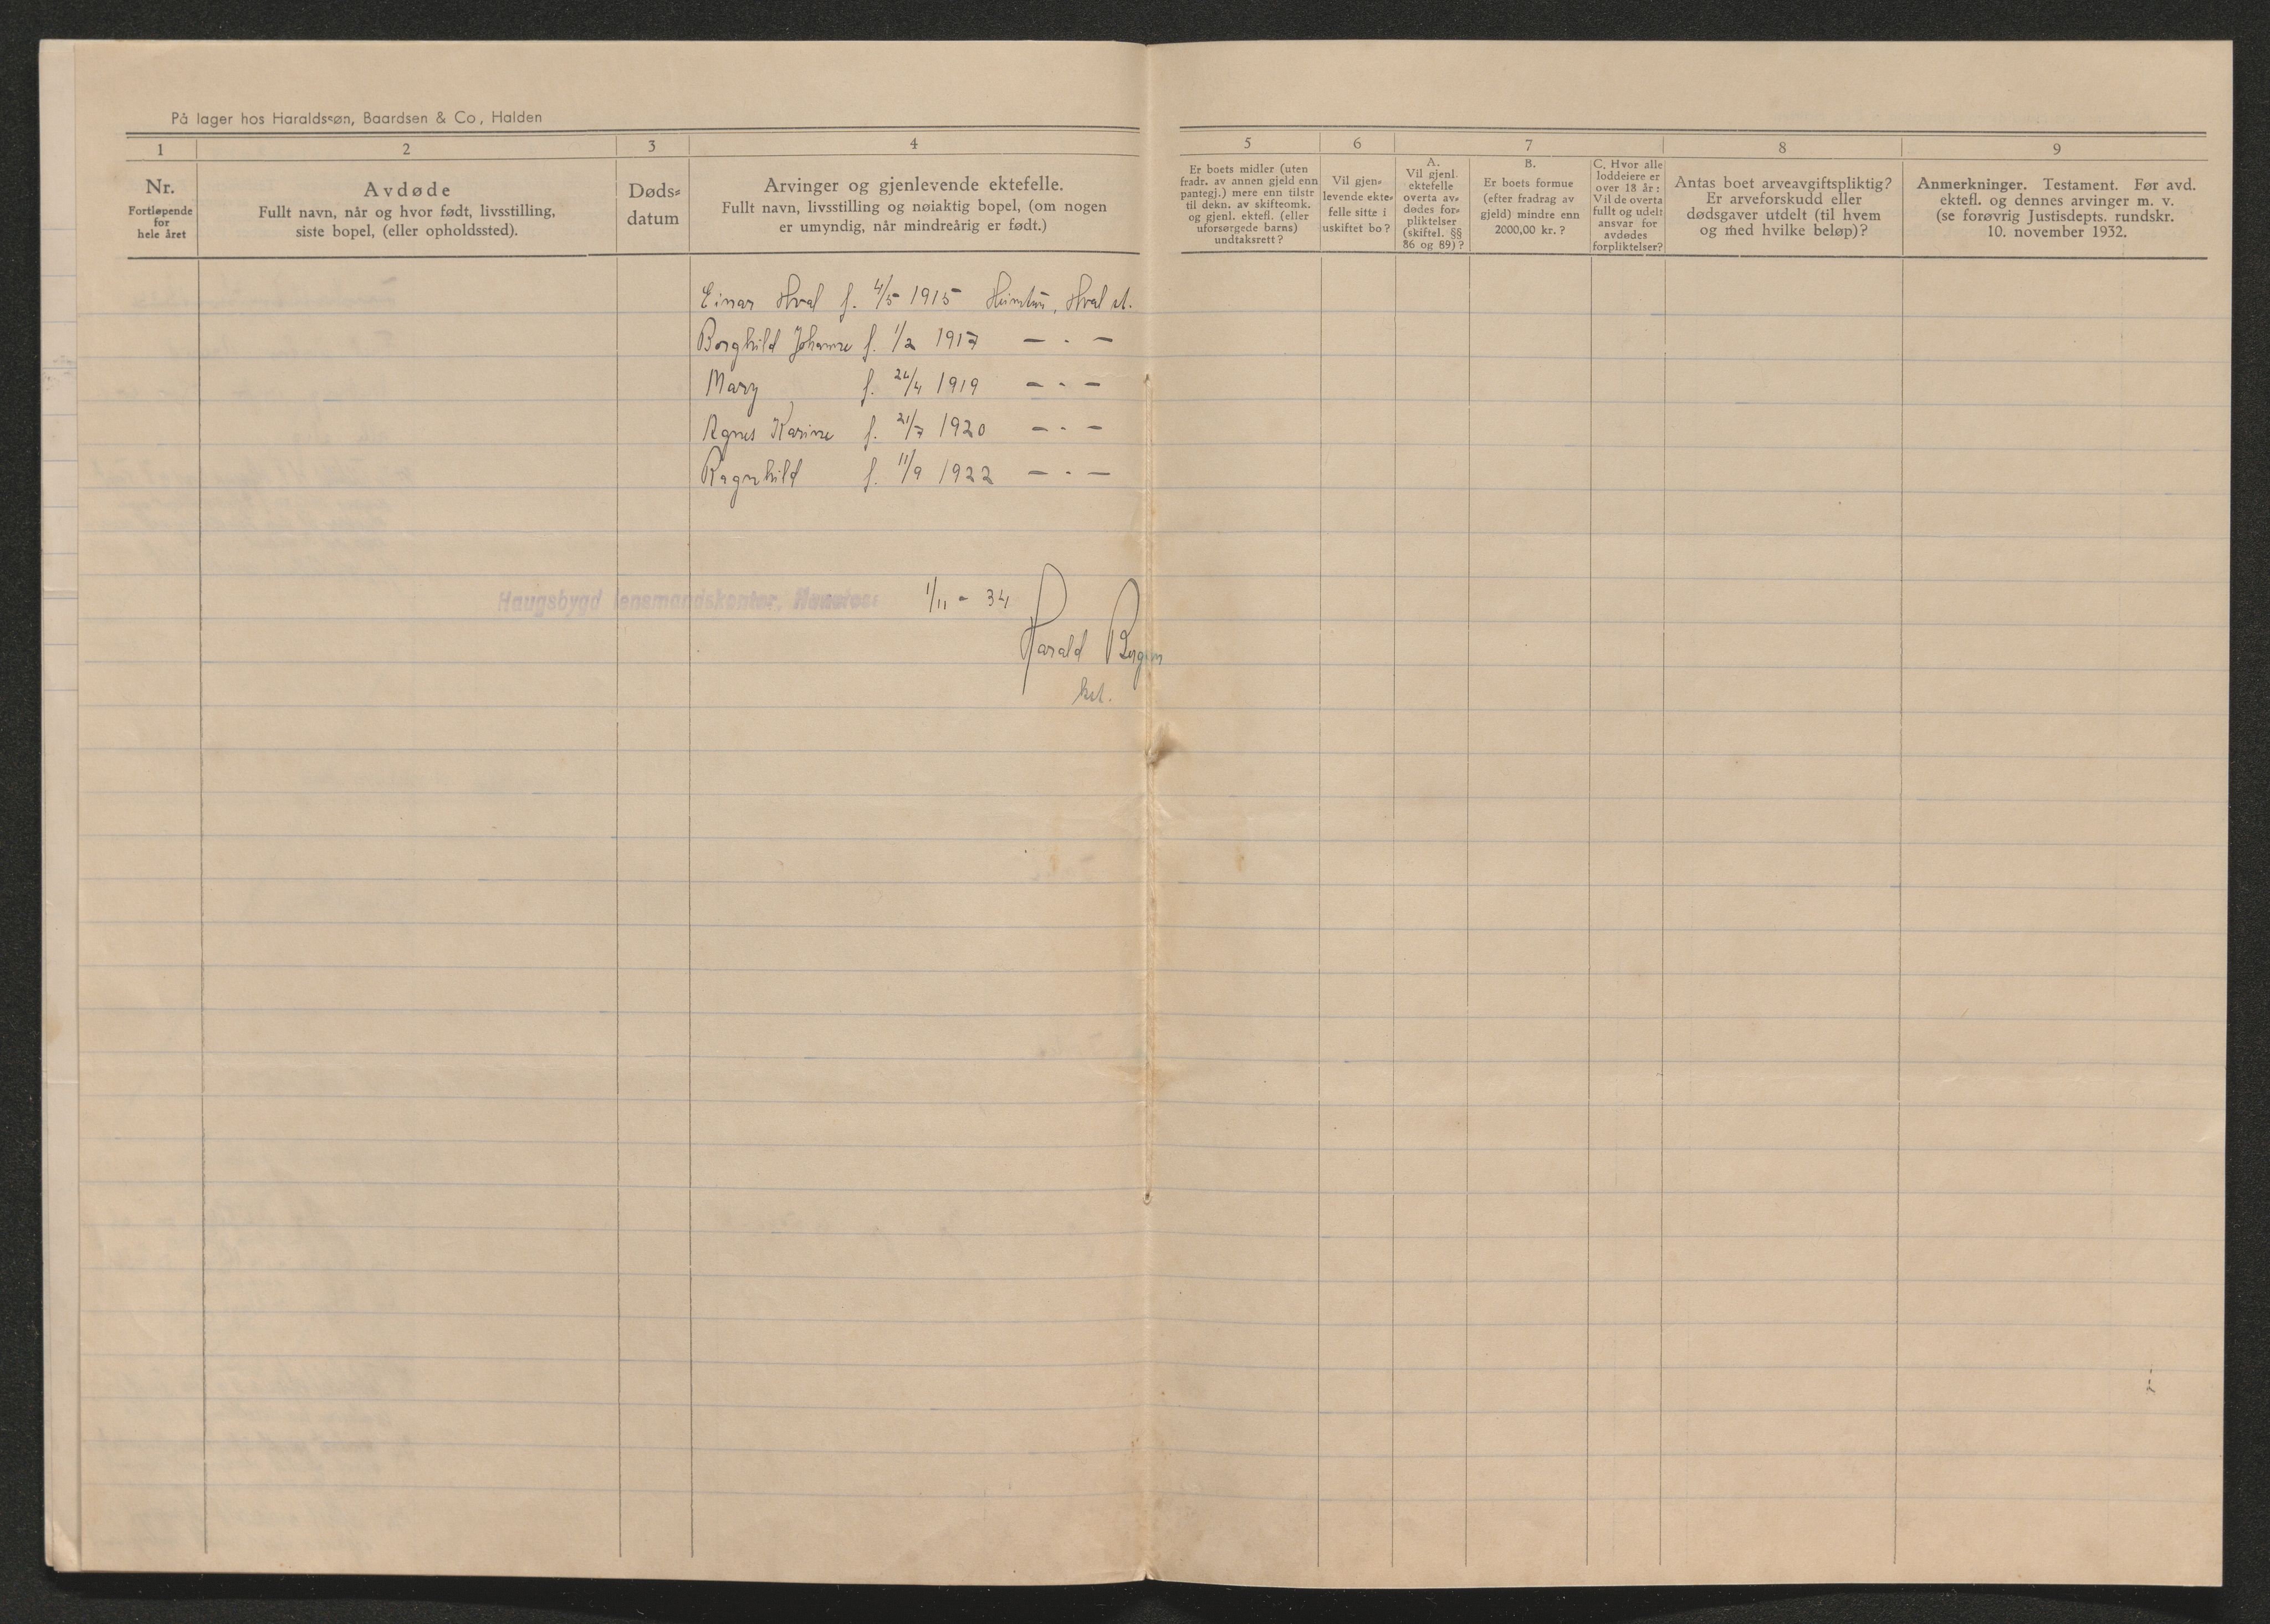 På lager hos Haraldssøn, Baardsen & Co, Halden
1
2
3
4
Nr.
Fortløpende
for
hele året
Avdøde
Fullt navn, når og hvor født, livsstilling,
siste bopel, (eller opholdssted).
Døds-
datum
Arvinger og gjenlevende ektefelle.
Fullt navn, livsstilling og nøiaktig bopel, (om nogen
er umyndig, når mindreårig er født.)
Einar Hval f. 4/5 1915 Heimtun, Hval st.
Borghild Johanne f. 1/2 1917 — - —
Mary f. 24/4 1919 — - —
Agnes Karine f. 21/7 1920 — - —
Ragnhild f. 11/9 1922 — - —
Haugsbygd lensmandskontor,
1/11 - 34
Harald
5
6
7
8
9
Er boets midler (uten
fradr. av annen gjeld enn
pantegj.) mere enn tilstr
til dekn. av skifteomk.
og gjenl. ektefl. (eller
uforsørgede barns)
undtaksrett?
Vil gjen-
levende ekte-
felle sitte i
uskiftet bo?
A.
Vil gjenl.
ektefelle
overta av-
dødes for-
pliktelser
(skiftel. §§
86 og 89)?
B.
Er boets formue
(efter fradrag av
gjeld) mindre enn
2000,00 kr.?
C. Hvor alle
loddeiere er
over 18 år:
Vil de overta
fullt og udelt
ansvar for
avdødes
forpliktelser?
Antas boet arveavgiftspliktig?
Er arveforskudd eller
dødsgaver utdelt (til hvem
og med hvilke beløp)?
Anmerkninger. Testament. Før avd.
ektefl. og dennes arvinger m. v.
(se forøvrig Justisdepts. rundskr.
10. november 1932.